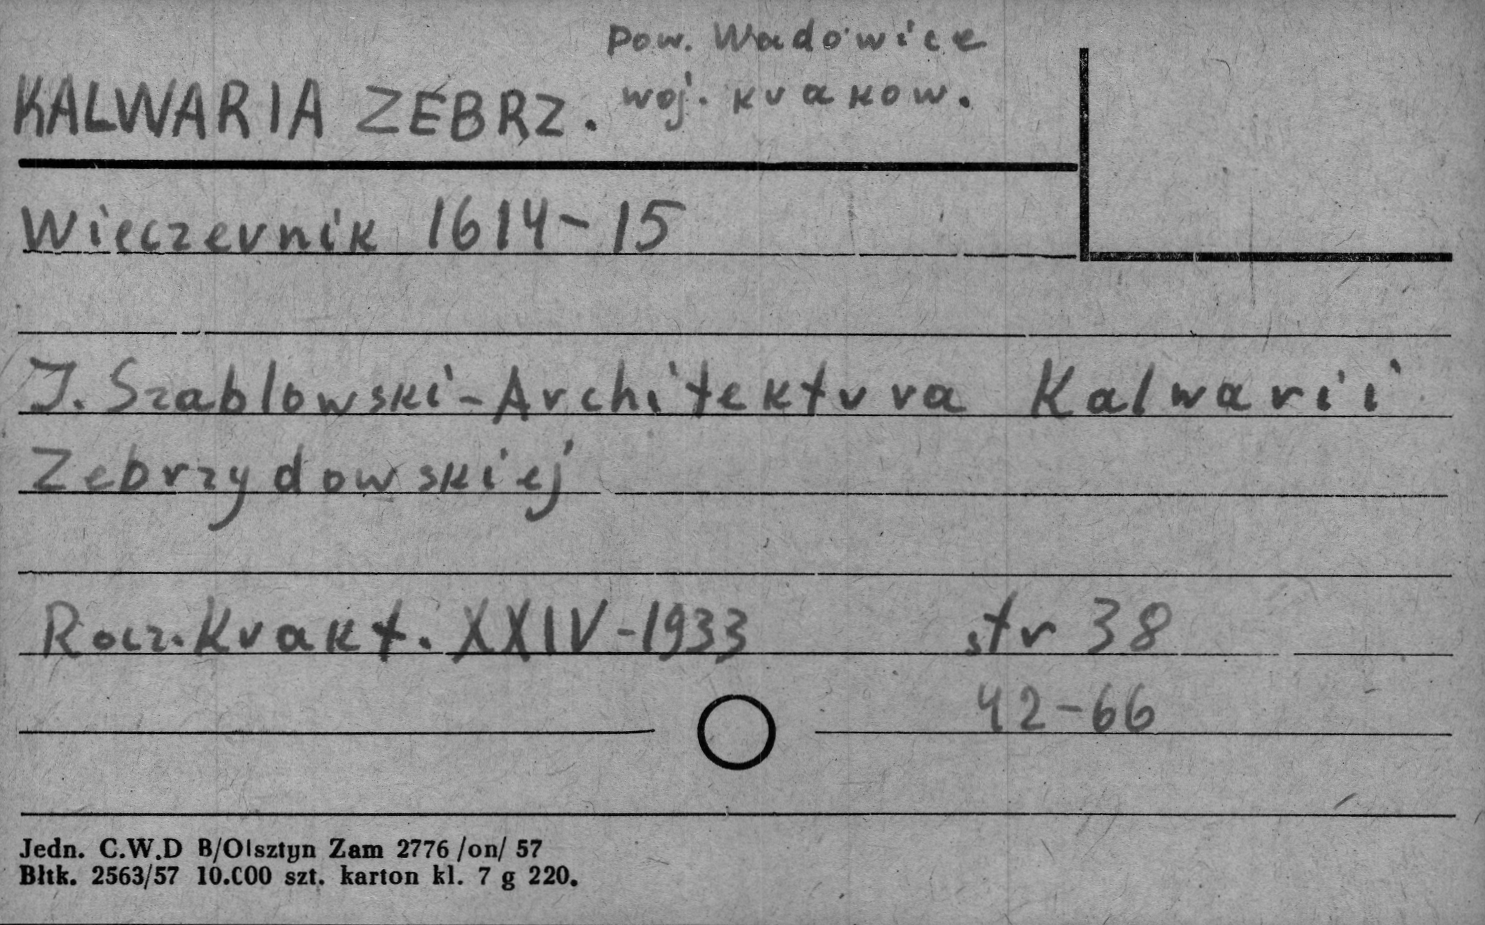 pow. Wadowice
KALWARIA ZEBRZ. woj. krakow.
Wieczernik 1614-15
J. Szablowski - Architektura Kalwarii
Zebrzydowskiej
Rocz. Krakt. XXIV - 1933 str 38
42-66
Jedn. C.W.D B/Olsztyn Zam 2776 /on/ 57
Błtk. 2563/57 10.000 szt. karton kl. 7 g 220.